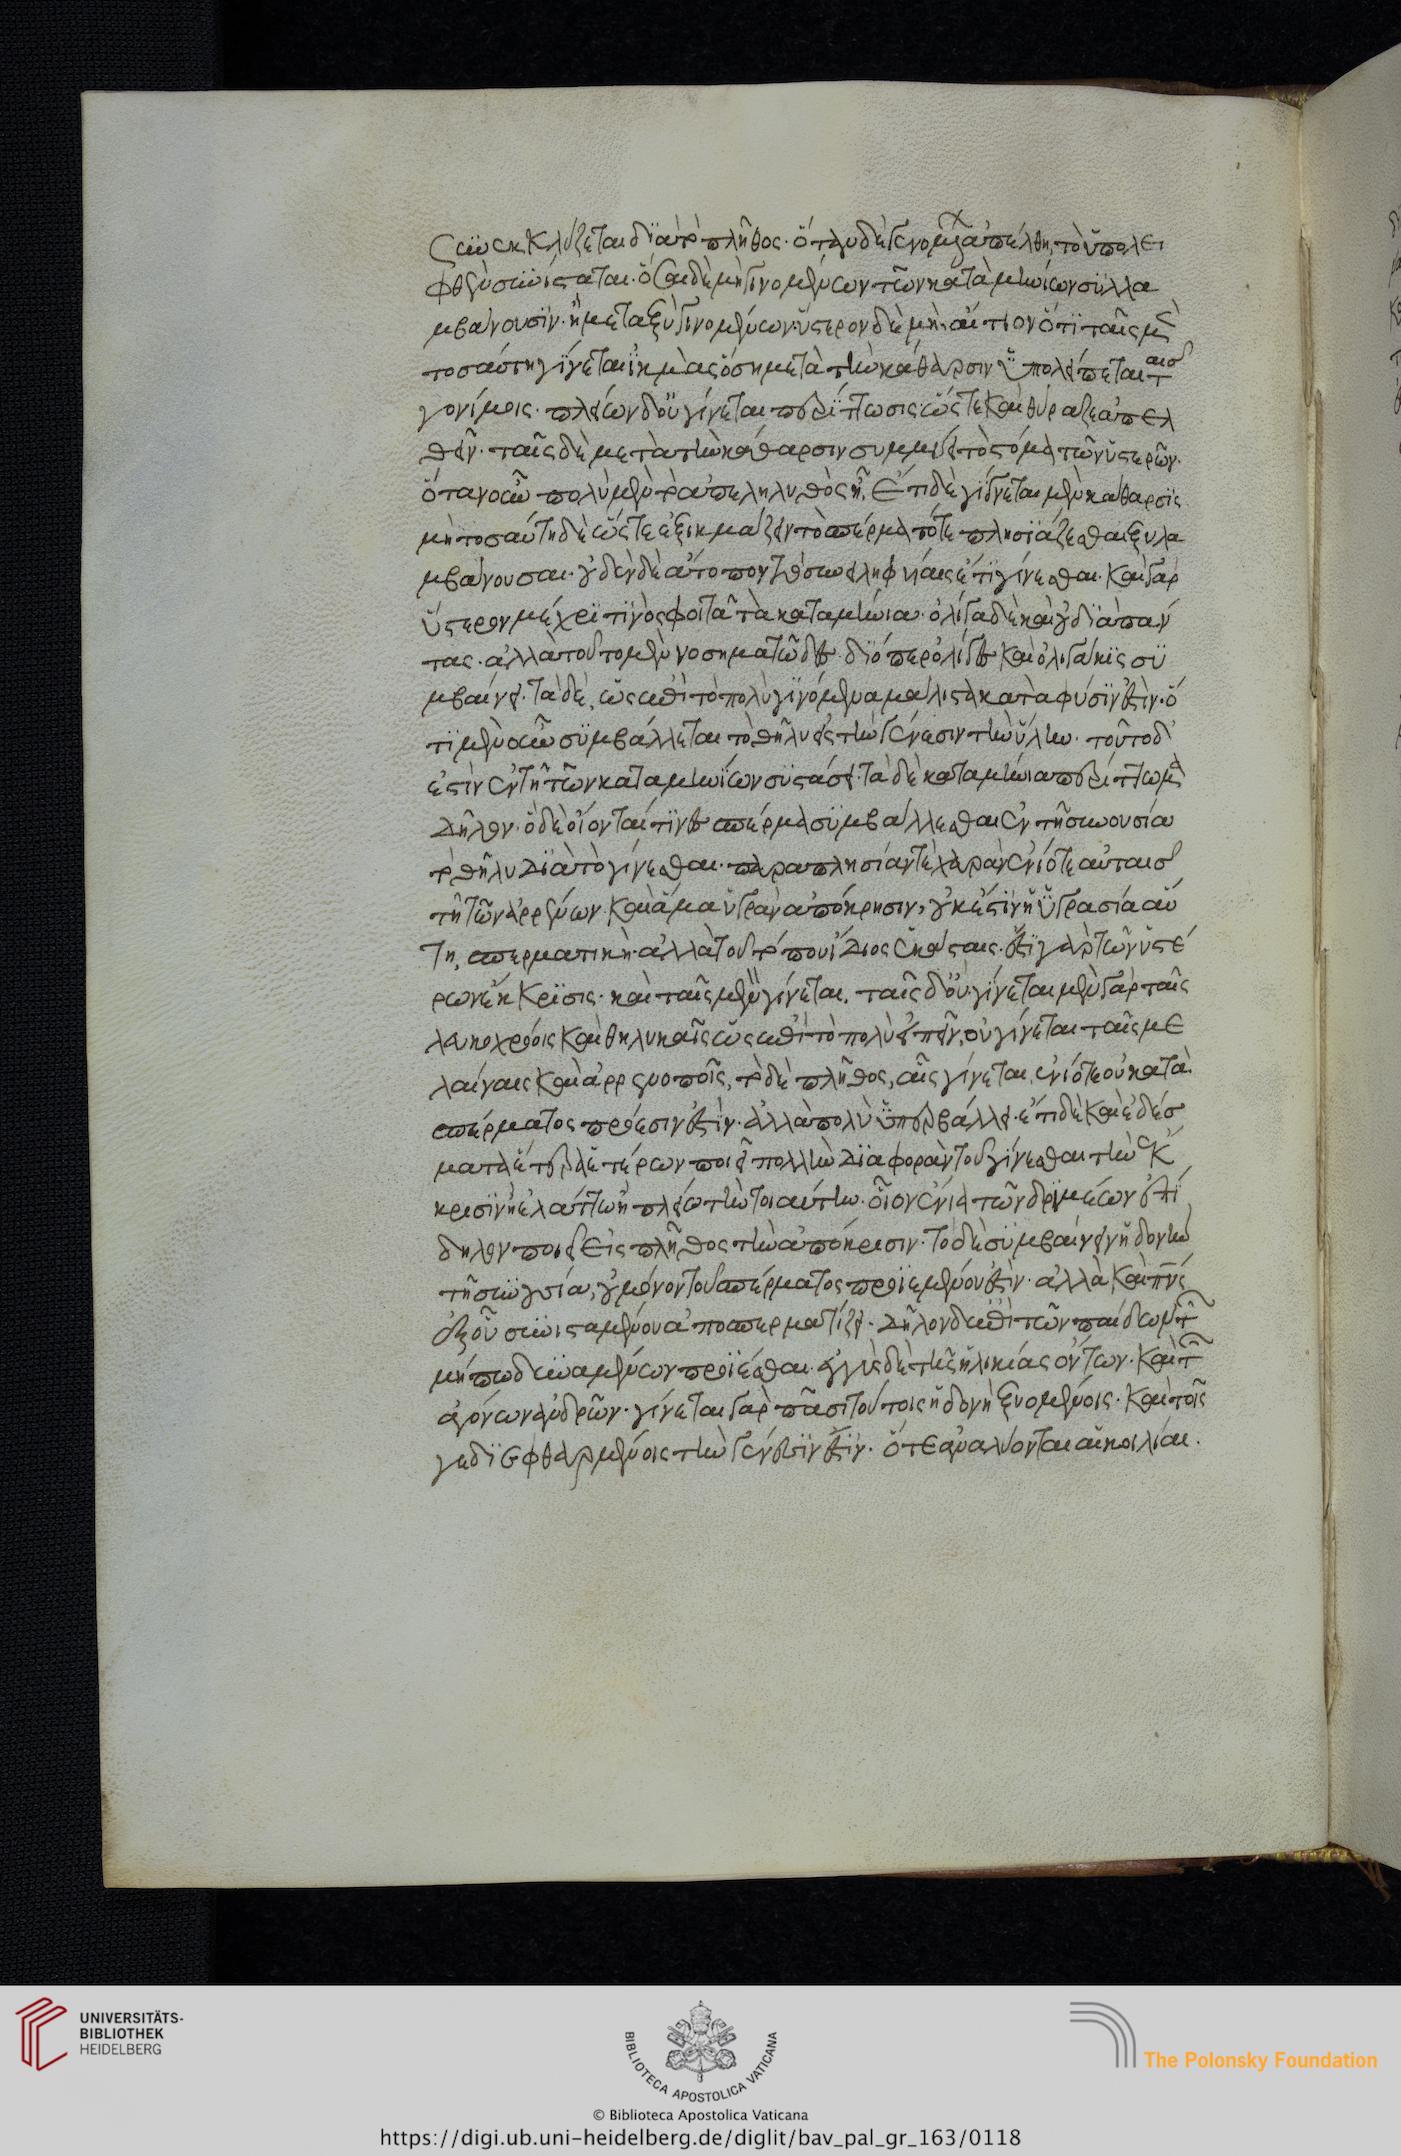 συνεκκλύζεται διὰ τὸ πλῆθος· ὅταν δὲ γενόμενα ἀπέλθη, τὸ ὑπολει
φθὲν συνίσταται· ὅσαι δὲ μὴ γινομένων τῶν καταμηνίων συλλα
μβάνουσιν· ἢ μεταξὺ γινομένων· ὕστερον δὲ μὴ· αἴτιον ὅτι ταῖς μὲν
τοσαύτη γίνεται ἰκμὰς ὅση μετὰ τὴν κάθαρσιν ὑπολείπεται ταῖς
γονίμοις· πλείων δ' οὐ γίνεται περίττωσις ὥστε καὶ θύραζε ἀπελ
θεῖν· ταῖς δὲ μετὰ τὴν κάθαρσιν συμμύει τὸ στόμα τῶν ὑστερῶν·
ὅταν οὖν πολὺ μὲν τὸ ἀπεληλυθὸς ῆ, ἔτι δὲ γίγνεται μὲν κάθαρσις
μὴ τοσαύτη δὲ ὥστε ἐξικμάζειν τὸ σπέρμα τότε πλησιάζεσθαι ξυλα
μβάνουσαι· οὐδὲν δὲ ἄτοπον τὸ συνειληφυίαις ἔτι γίνεσθαι· καὶ γὰρ
ὕστερον μέχρι τινὸς φοιτᾶ τὰ καταμήνια· ὀλίγα δὲ καὶ οὐ διὰ παν
τας· ἀλλὰ τοῦτο μὲν νοσηματῶδες· διόπερ ὀλίγες καὶ ὀλιγάκις συ
μβαίνει· τὰ δὲ, ὡς ἐπὶ τὸ πολὺ γινόμενα μάλιστα κατὰ φύσιν ἐστὶν· ὅ
τι μὲν οὖν συμβάλλεται τὸ θῆλυ εἰς τὴν γένεσιν τὴν ὕλην· τοῦτο δ'
ἐστὶν ἐν τῆ τῶν καταμηνίων συστάσει· τὰ δὲ καταμήνια περίττωμα
Δῆλον· ὁ δὲ οἴονται τίνες σπέρμα συμβάλλεσθαι ἐν τῆ συνουσία
τὸ θῆλυ Διὰ τὸ γίνεσθαι· παραπλησίαν τὲ χαρὰν ἐνίοτε αὐταισ
τῆ τῶν ἀρρένων· καὶ ἅμα ὑγρὰν ἀπόκρησιν, οὐκ ἔστιν ἡ ὑγρασία αὕ
τη, σπερματικὴ· ἀλλὰ τοῦ τόπου ἴδιος ἑκάσταις· ἔστι γὰρ τῶν ὑστέ
ρων ἔκκρισις· καὶ ταῖς μὲν γίνεται· ταῖς δ' οὐ· γίνεται μὲν γὰρ ταῖς
λευκοχρόοις καὶ θηλυκαῖς ὡς ἐπὶ τὸ πολὺ εἰπεῖν, οὐ γίνεται ταῖς με
λαίναις καὶ ἀρρενοποῖς, τὸ δὲ πλῆθος, αἷς γίνεται, ἐνίοτε οὐ κατὰ
σπέρματος πρόεσιν ἐστὶν· ἀλλὰ πολὺ ὑπερβάλλει· ἔτι δὲ καὶ ἐδέσ
ματα ἕτερα ἑτέρων ποιεῖ πολλὴν Διαφορὰν τοῦ γίνεσθαι τὴν ἔκ
κρισιν ἢ ἐλάττω ἢ πλείω τὴν τοιαύτην· οἷον ἔνια τῶν δριμέων ἐπί
δηλον ποιεῖ εἰς πλῆθος τὴν ἀπόκρισιν· τὸ δὲ συμβαίνειν ἡδονὴν
τῆ συνουσία, οὐ μόνον τοῦ σπέρματος προϊεμένου ἐστὶν· ἀλλὰ, καὶ πνς
ἐξ οὗ συνισταμένου ἀποσπερματίζει· Δῆλον δὲ ἐπὶ τῶν παίδων τῶν
μήπω δυναμένων προΐεσθαι· ἐγγὺς δὲ τῆς ἡλικίας ὄντων· καὶ τῶν
ἀγόνων ἀνδρῶν· γίνεται γὰρ πᾶσι τούτοις ἡδονὴ ξυομένοις· καὶ τοῖς
γε διεφθαρμένοις τὴν γένεσιν ἐστὶν· ὅτε ἀναλύονται αἱ κοιλίαι·
UNIVERSITÄTS-
BIBLIOTHEK
HEIDELBERG
BIBLIOTECA APOSTOLICA VATICANA
The Polonsky Foundation
© Biblioteca Apostolica Vaticana
https://digi.ub.uni-heidelberg.de/diglit/bav_pal_gr_163/0118